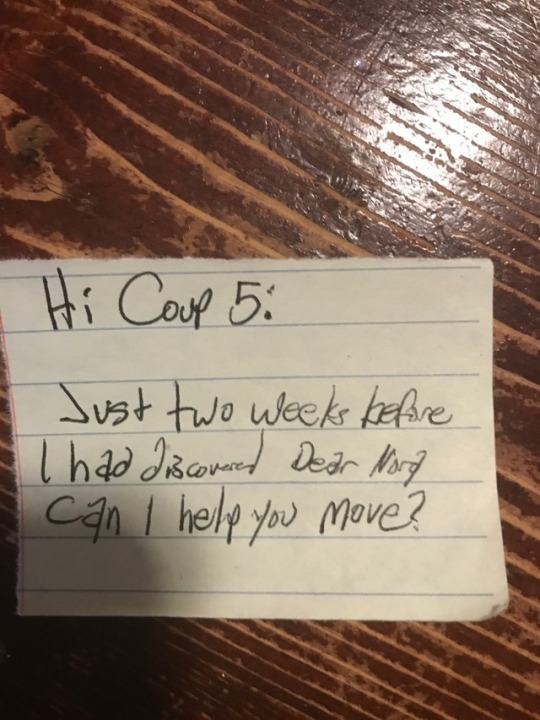 Hi Coup 5:
Just two weeks before
I had discovered Dear Nora
Can I help you move?